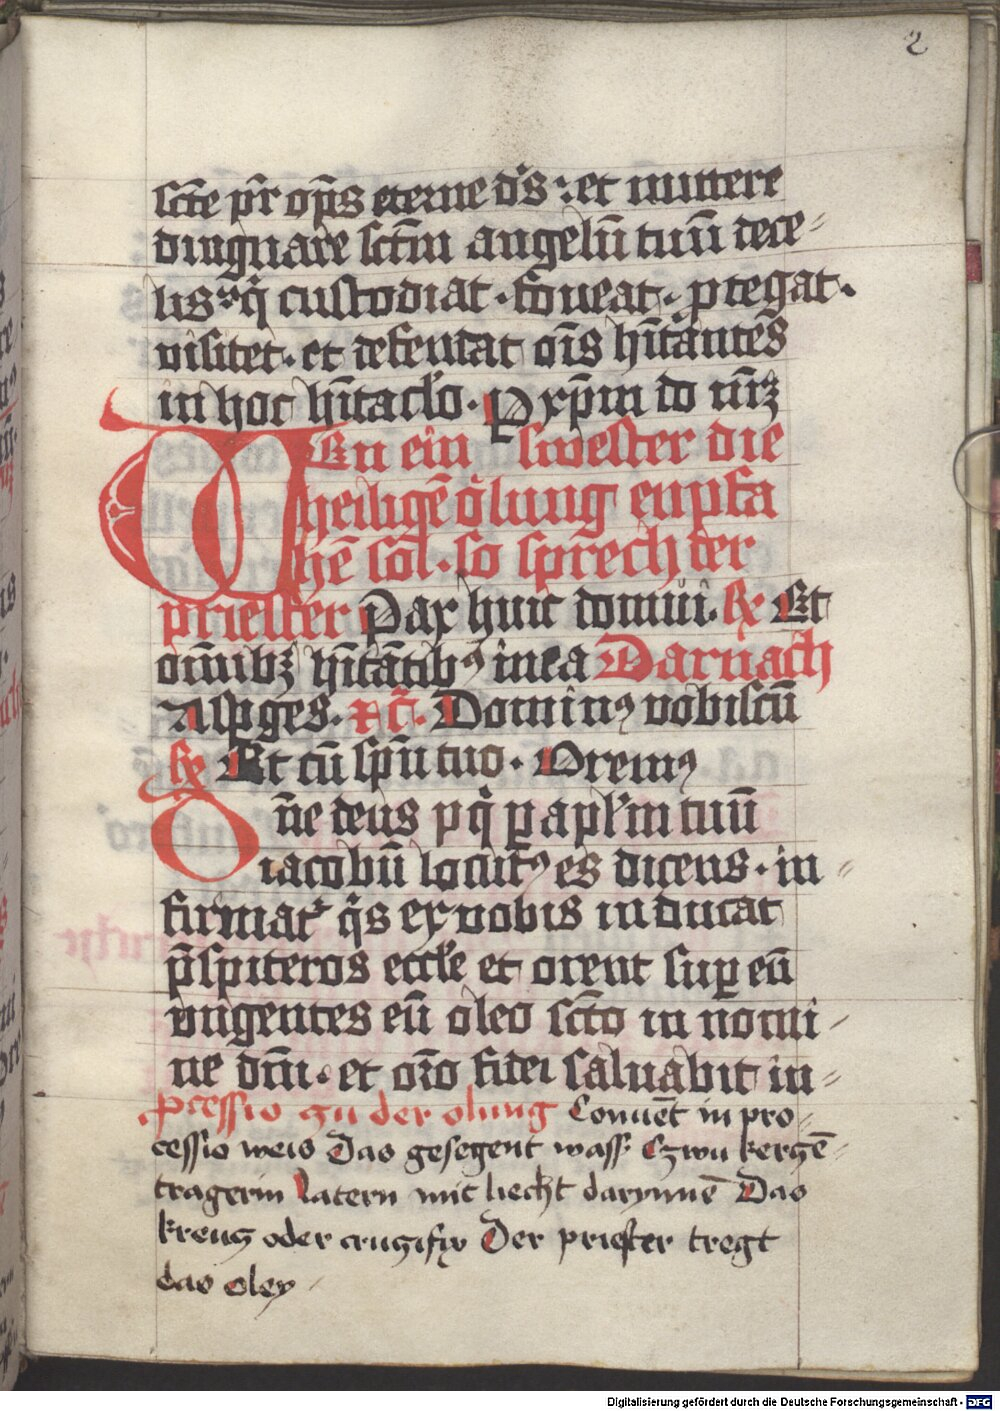 2
scte pr̄ op̄s eterne dn̄s : et mittere
dingnare sctm̄ angelū tuū dece-
lis : q̄ custodiat . foveat . ꝓtegat .
visitet . et defendat oīs hītantēs
in hoc hītaclo . P xpm̄ do nr̄ꝫ
WEn ein swester die
heiligē ölung enpfa
hē sol . so sprech der
priester Pax huic domui . ℟ Et
omībꝫ hītātibꝰ in ea Darnach
Asꝑges . ꝛc̄ . Dominꝰ vobiscū
℟ Et cū spū tuo . Oremꝰ
Dn̄e deus ꝓ q̄ ꝑ apl̄m tuū
iacobū locutꝰ es dicens . in-
firmat᷑ q̄s ex vobis inducat
p̄spiteros eccl̄e et orent suꝑ eū
vngentes eū oleo scto in nomi-
ne dm̄ . et oro fidei salvabit in-
Pcessio zu der olung Convēt in pro-
cessio weis Das gesegent wass Czwu kerczē-
tragerin Latern mit liecht darynnē Das
kreucz oder crucifix Der priester tregt
das oley
Digitalisierung gefördert durch die Deutsche Forschungsgemeinschaft - DFG